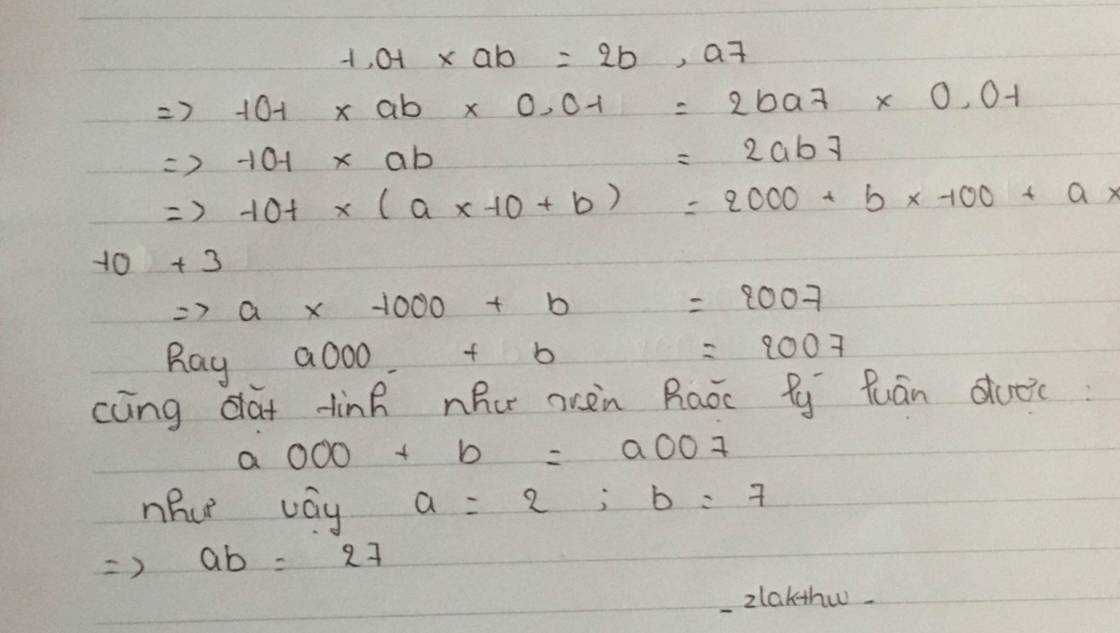 1,01 × ab = 2b , a7
=> 101 × ab × 0,01 = 2ba7 × 0,01
=> 101 × ab = 2ab7
=> 101 × ( a × 10 + b ) = 2000 + b × 100 + a ×
10 + 3
=> a × 1000 + b = 2007
hay a000 + b = 2007
cũng đặt tính như trên hoặc lý luận được :
a 000 + b = a007
như vậy a = 2 ; b = 7
=> ab = 27
- zlakthw -